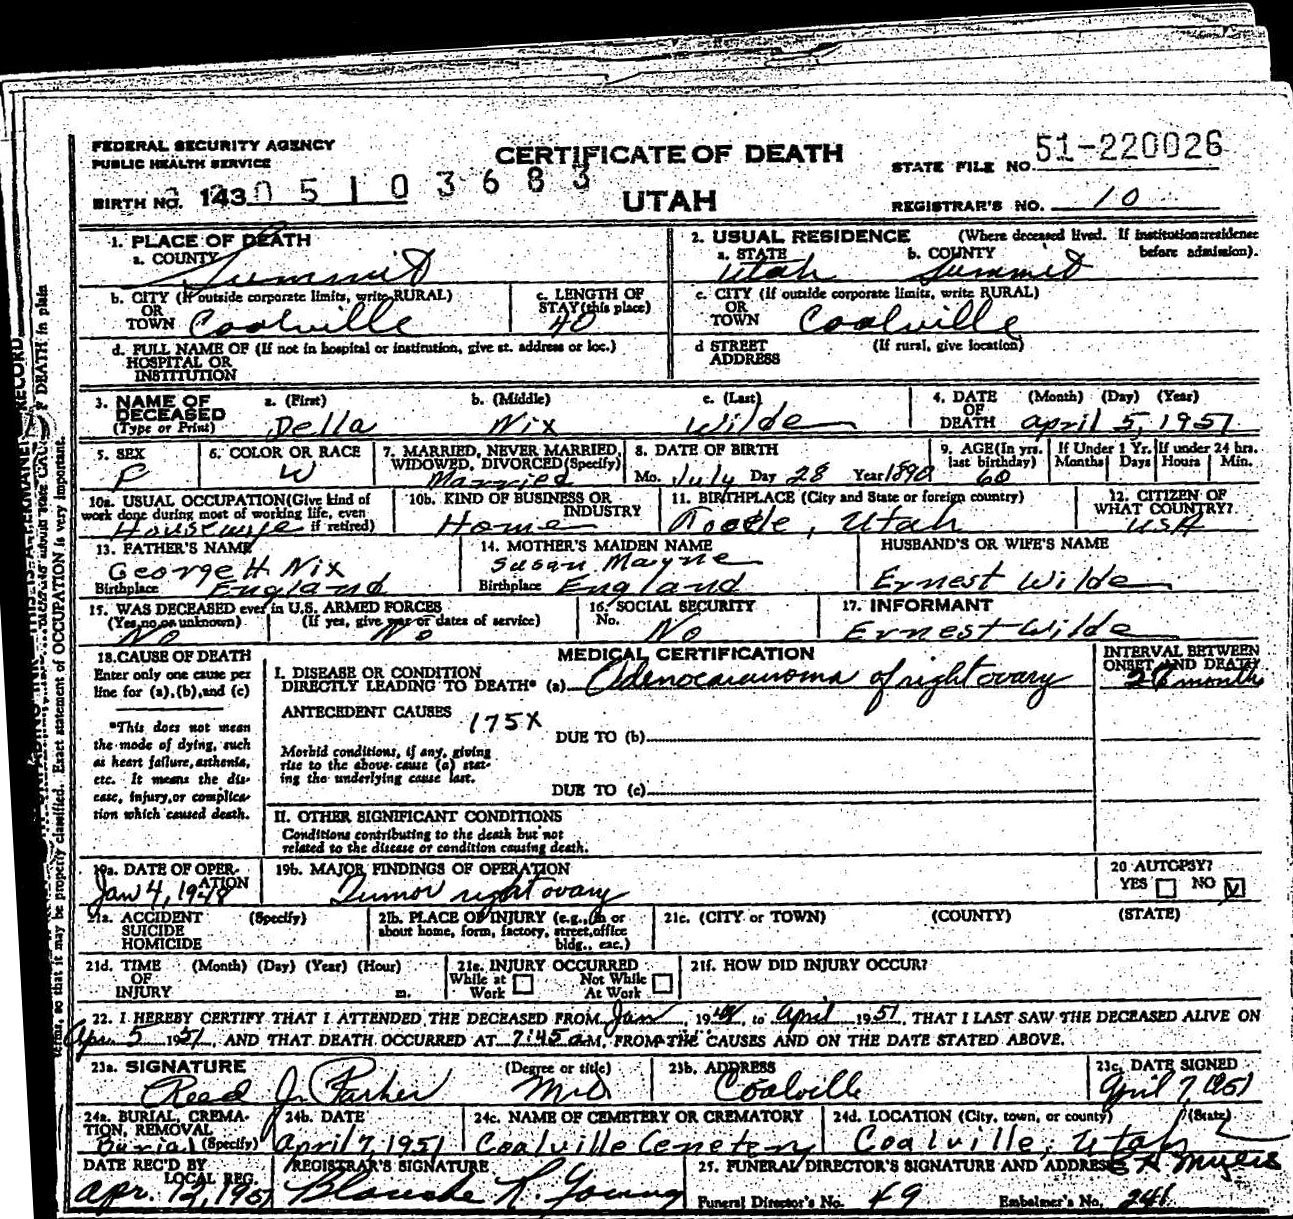 FEDERAL SECURITY AGENCY
PUBLIC HEALTH SERVICE
CERTIFICATE OF DEATH
UTAH
STATE FILE NO. 51-220026
BIRTH NO. 143 0 5 1 0 3 6 8 3
REGISTRAR'S NO. 10
1. PLACE OF DEATH
a. COUNTY Summit
2. USUAL RESIDENCE (Where deceased lived. If institution:residence before admission).
a. STATE Utah b. COUNTY Summit
b. CITY (If outside corporate limits, write RURAL) OR TOWN Coalville
c. LENGTH OF STAY (this place) 40
c. CITY (If outside corporate limits, write RURAL) OR TOWN Coalville
d. FULL NAME OF (If not in hospital or institution, give st. address or loc.) HOSPITAL OR INSTITUTION
d STREET ADDRESS (If rural, give location)
3. NAME OF DECEASED (Type or Print)
a. (First) Della b. (Middle) Nix c. (Last) Wilde
4. DATE OF DEATH (Month) (Day) (Year) April 5, 1951
5. SEX F
6. COLOR OR RACE W
7. MARRIED, NEVER MARRIED, WIDOWED, DIVORCED (Specify) Married
8. DATE OF BIRTH Mo. July Day 28 Year 1890
9. AGE (In yrs. last birthday) 60
If Under 1 Yr. Months Days
If under 24 hrs. Hours Min.
10a. USUAL OCCUPATION (Give kind of work done during most of working life, even if retired) Housewife
10b. KIND OF BUSINESS OR INDUSTRY Home
11. BIRTHPLACE (City and State or foreign country) Tooele, Utah
12. CITIZEN OF WHAT COUNTRY? USA
13. FATHER'S NAME George H Nix
Birthplace England
14. MOTHER'S MAIDEN NAME Susan Mayne
Birthplace England
HUSBAND'S OR WIFE'S NAME
Ernest Wilde
15. WAS DECEASED ever in U.S. ARMED FORCES
(Yes, no, or unknown) No (If yes, give war or dates of service) No
16. SOCIAL SECURITY No. No
17. INFORMANT Ernest Wilde
18. CAUSE OF DEATH
Enter only one cause per line for (a), (b), and (c)
*This does not mean the mode of dying, such as heart failure, asthenia, etc. It means the disease, injury, or complication which caused death.
MEDICAL CERTIFICATION
INTERVAL BETWEEN ONSET AND DEATH
I. DISEASE OR CONDITION DIRECTLY LEADING TO DEATH* (a) Adenocarcinoma of right ovary
months
ANTECEDENT CAUSES 175X
DUE TO (b)
Morbid conditions, if any, giving rise to the above cause (a) stating the underlying cause last.
DUE TO (c)
II. OTHER SIGNIFICANT CONDITIONS
Conditions contributing to the death but not related to the disease or condition causing death.
19a. DATE OF OPERATION Jan 4, 1948
19b. MAJOR FINDINGS OF OPERATION Tumor right ovary
20 AUTOPSY? YES NO
21a. ACCIDENT SUICIDE HOMICIDE (Specify)
21b. PLACE OF INJURY (e.g., in or about home, form, factory, street, office bldg., exc.)
21c. (CITY or TOWN) (COUNTY) (STATE)
21d. TIME OF INJURY (Month) (Day) (Year) (Hour) m.
21e. INJURY OCCURRED While at Work Not While At Work
21f. HOW DID INJURY OCCUR?
22. I HEREBY CERTIFY THAT I ATTENDED THE DECEASED FROM Jan, 19 to April 1951, THAT I LAST SAW THE DECEASED ALIVE ON
Apr 5 1951, AND THAT DEATH OCCURRED AT 7:45 a.M, FROM THE CAUSES AND ON THE DATE STATED ABOVE.
23a. SIGNATURE (Degree or title) Reed J. Parker M.D.
23b. ADDRESS Coalville
23c. DATE SIGNED April 7, 1951
24a. BURIAL, CREMATION, REMOVAL (Specify) Burial
24b. DATE April 7, 1951
24c. NAME OF CEMETERY OR CREMATORY Coalville Cemetery
24d. LOCATION (City, town, or county) (State) Coalville, Utah
DATE REC'D BY LOCAL REG. Apr. 12, 1951
REGISTRAR'S SIGNATURE Blanche R. Young
25. FUNERAL DIRECTOR'S SIGNATURE AND ADDRESS Myers
Funeral Director's No. 49 Embalmer's No. 241
RECORD
DEATH in plain
terms, so that it may be properly classified. Exact statement of OCCUPATION is very important.